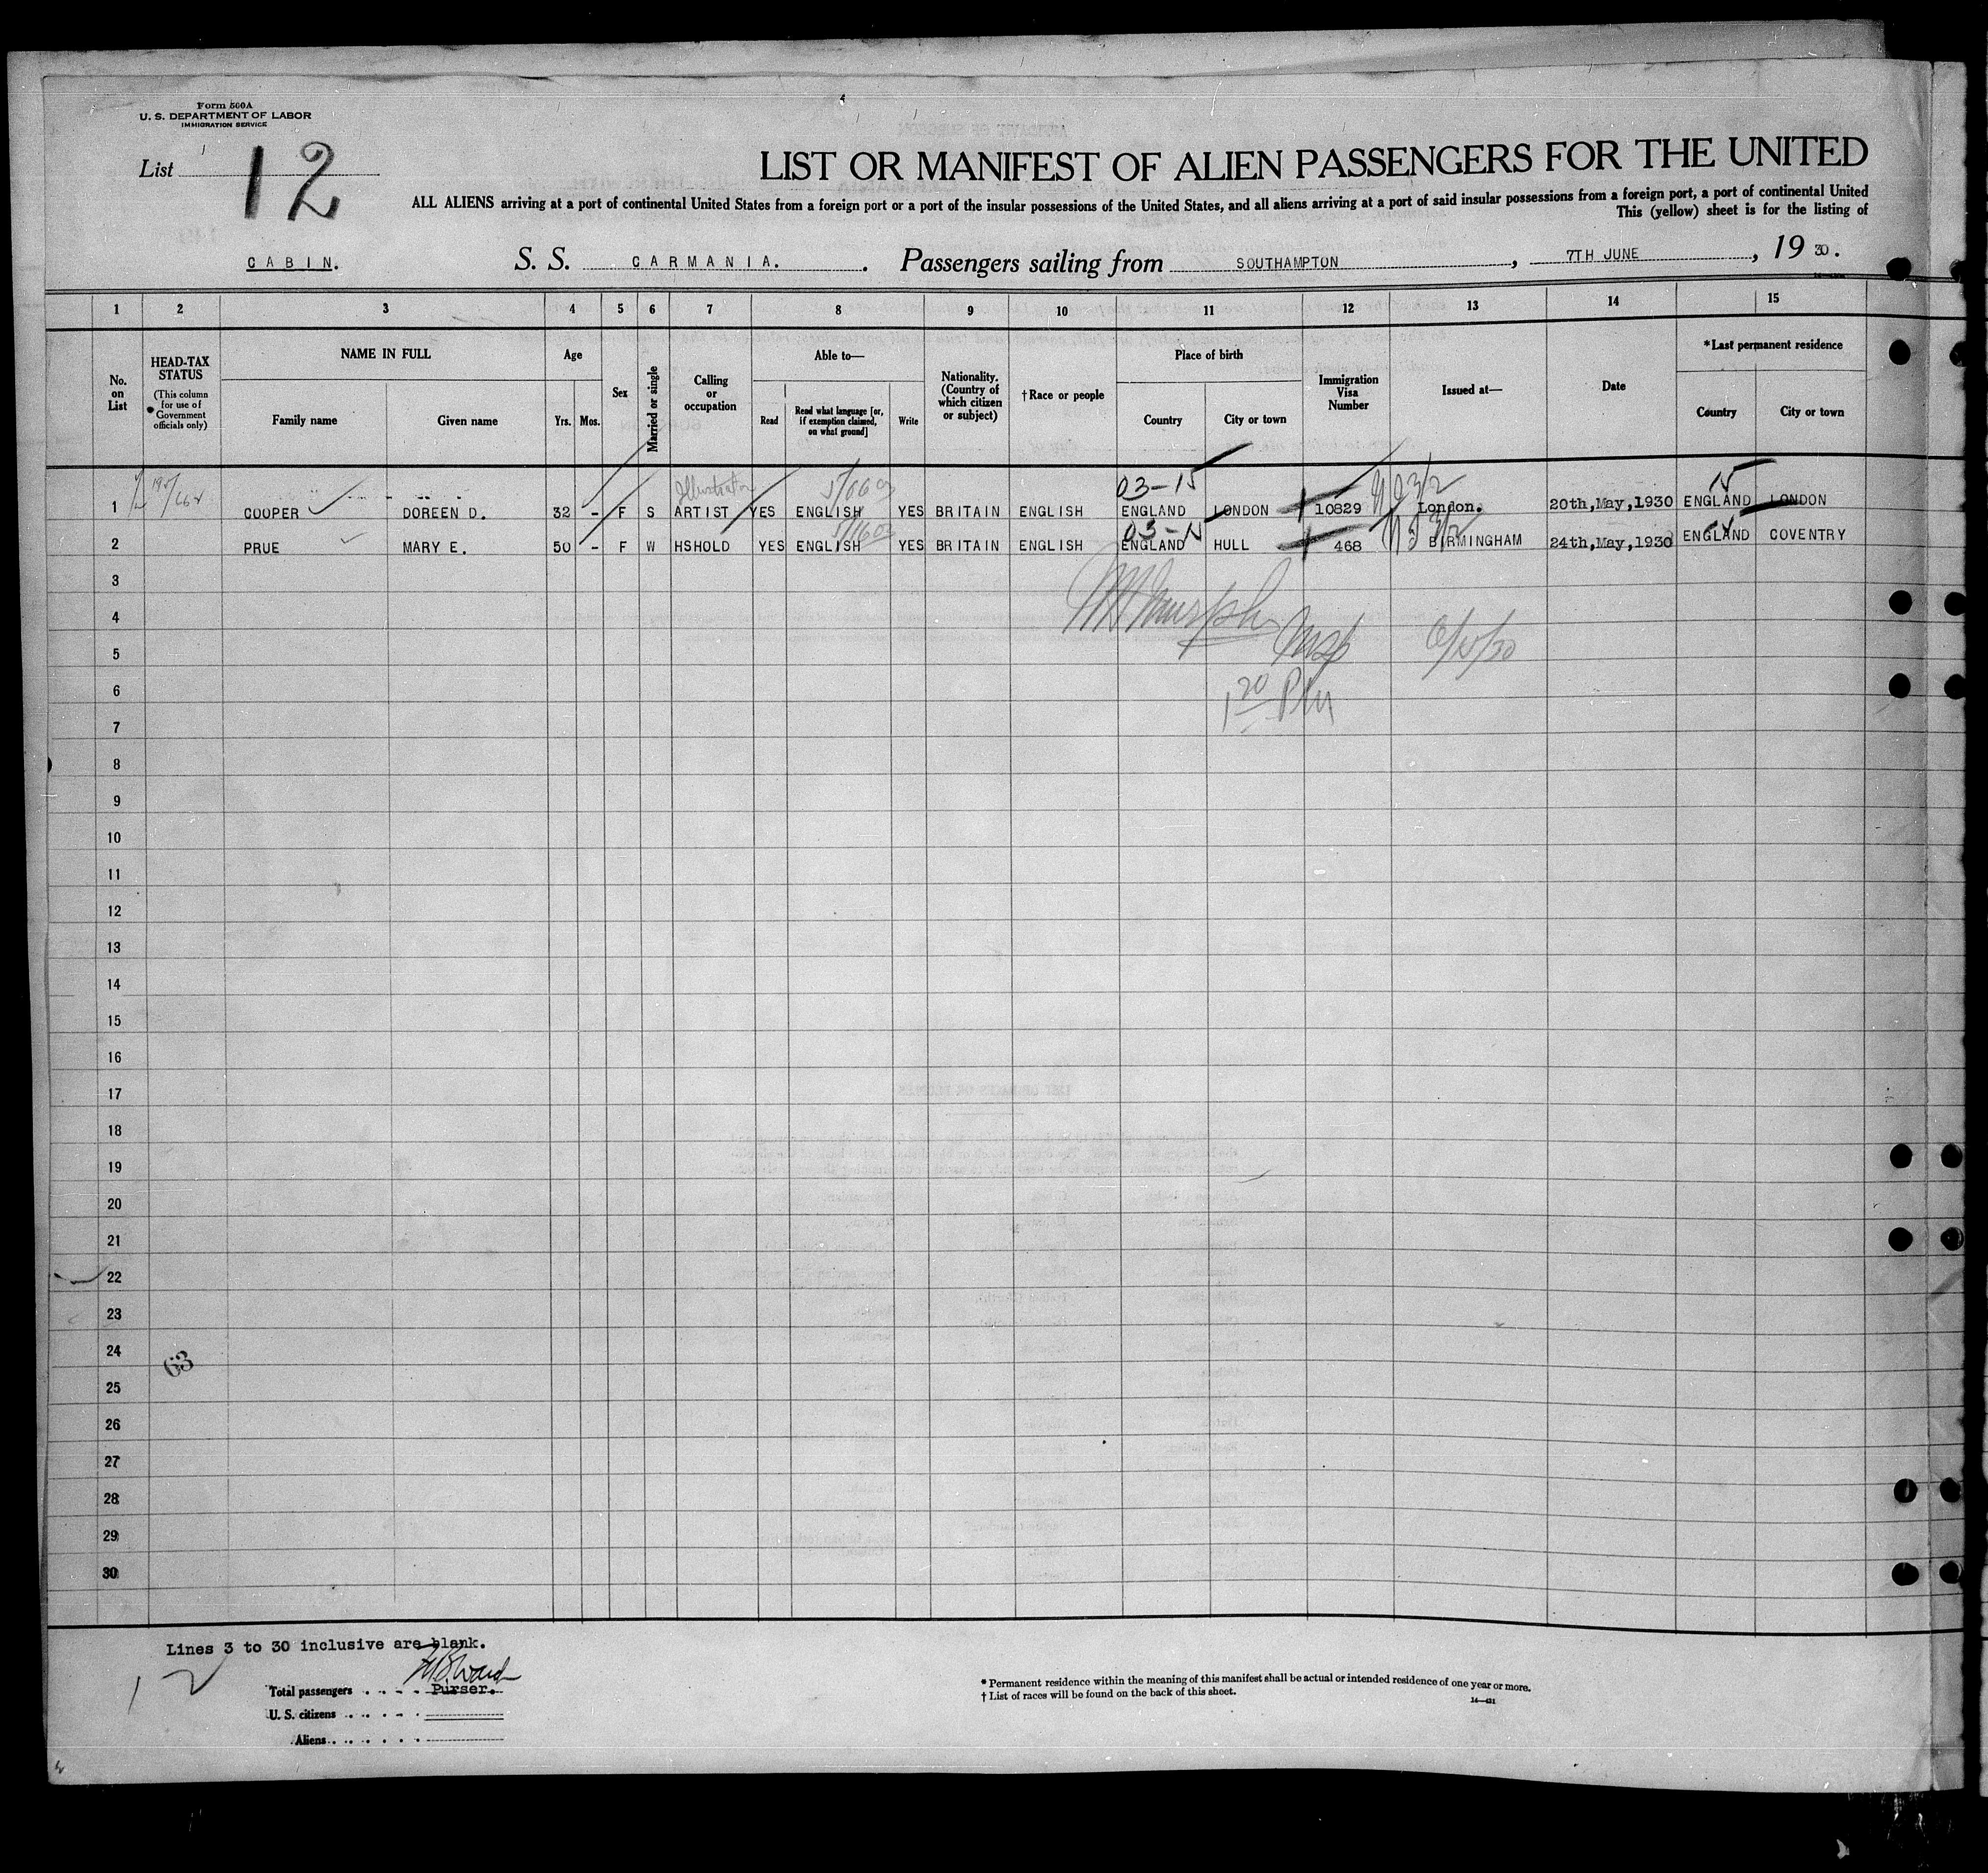 Form 500A
U. S. DEPARTMENT OF LABOR
IMMIGRATION SERVICE
List 12
LIST OR MANIFEST OF ALIEN PASSENGERS FOR THE UNITED
ALL ALIENS arriving at a port of continental United States from a foreign port or a port of the insular possessions of the United States, and all aliens arriving at a port of said insular possessions from a foreign port, a port of continental United
This (yellow) sheet is for the listing of
CABIN. S. S. CARMANIA. Passengers sailing from SOUTHAMPTON, 7TH JUNE, 19 30.
1 2 3 4 5 6 7 8 9 10 11 12 13 14 15
No. on List
HEAD-TAX STATUS
(This column for use of Government officials only)
NAME IN FULL
Family name
Given name
Age
Yrs.
Mos.
Sex
Married or single
Calling or occupation
Able to—
Read
Read what language [or, if exemption claimed, on what ground]
Write
Nationality. (Country of which citizen or subject)
† Race or people
Place of birth
Country
City or town
Immigration Visa Number
Issued at—
Date
*Last permanent residence
Country
City or town
Illustrator 03-15 15
1 COOPER DOREEN D. 32 - F S ARTIST YES ENGLISH YES BRITAIN ENGLISH ENGLAND LONDON 10829 London. 20th,May,1930 ENGLAND LONDON
03-15
2 PRUE MARY E. 50 - F W HSHOLD YES ENGLISH YES BRITAIN ENGLISH ENGLAND HULL 468 BIRMINGHAM 24th,May,1930 ENGLAND COVENTRY
3
4
5
6
1 20 PM
7
8
9
10
11
12
13
14
15
16
17
18
19
20
21
22
23
24
63
25
26
27
28
29
30
Lines 3 to 30 inclusive are blank.
Total passengers Purser.
U. S. citizens
Aliens
* Permanent residence within the meaning of this manifest shall be actual or intended residence of one year or more.
† List of races will be found on the back of this sheet.
14—421